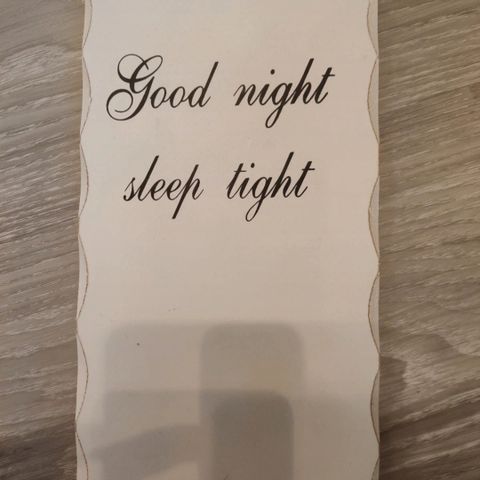 Good night
sleep tight